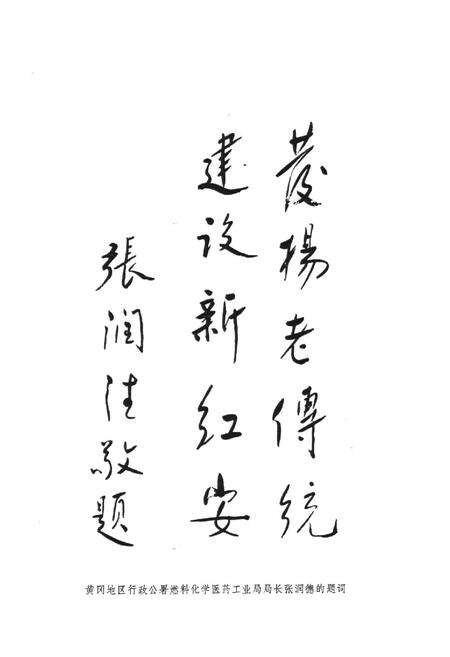 發楊老傳统
建设新红安
張润德敬题
黄冈地区行政公署燃料化学医药工业局局长张润德的题词